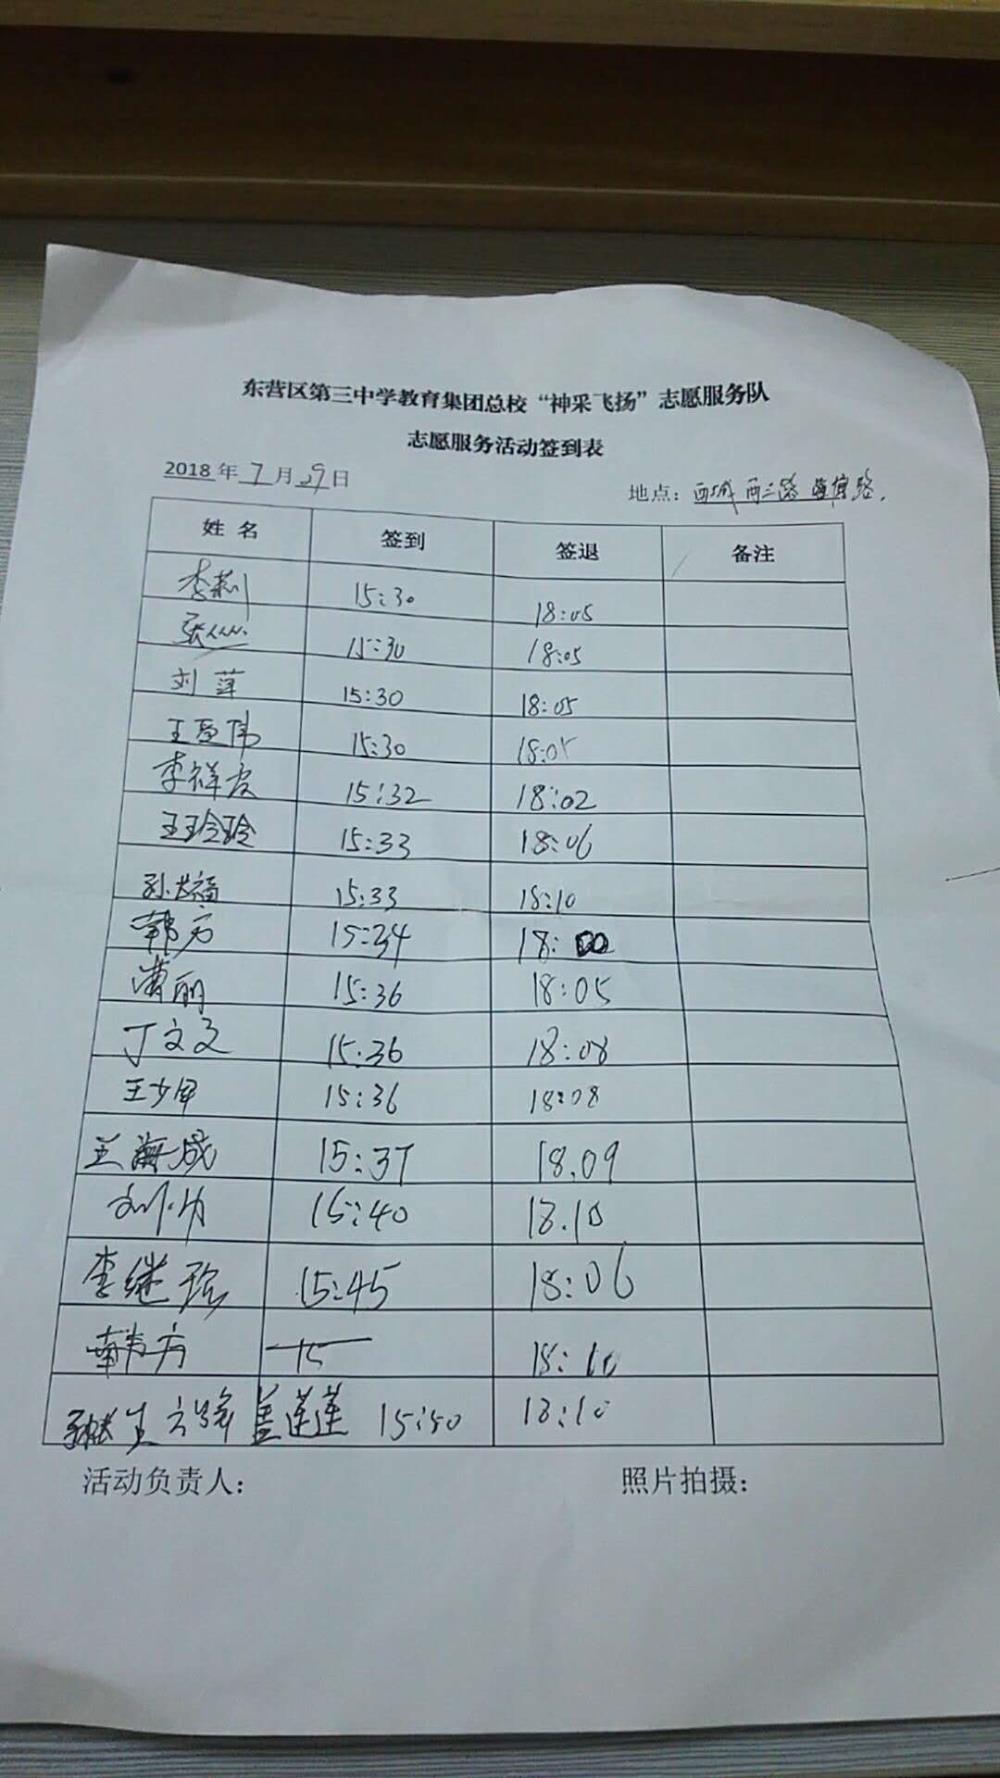 东营区第三中学教育集团总校“神采飞扬”志愿服务队
志愿服务活动签到表
2018年7月29日 地点：西城西二路
姓名 签到 签退 备注
李莉 15:30 18:05
15:30 18:05
刘萍 15:30 18:05
王 伟 15:30 18:05
李祥 15:32 18:02
王玲玲 15:33 18:06
孙 福 15:33 18:10
韩方 15:34 18:00
曹丽 15:36 18:05
丁文文 15:36 18:08
王少 15:36 18:08
王海成 15:37 18.09
15:40 18.10
李继珍 15:45 18:06
韩方 15 18:10
盖莲莲 15:50 18:10
活动负责人： 照片拍摄：